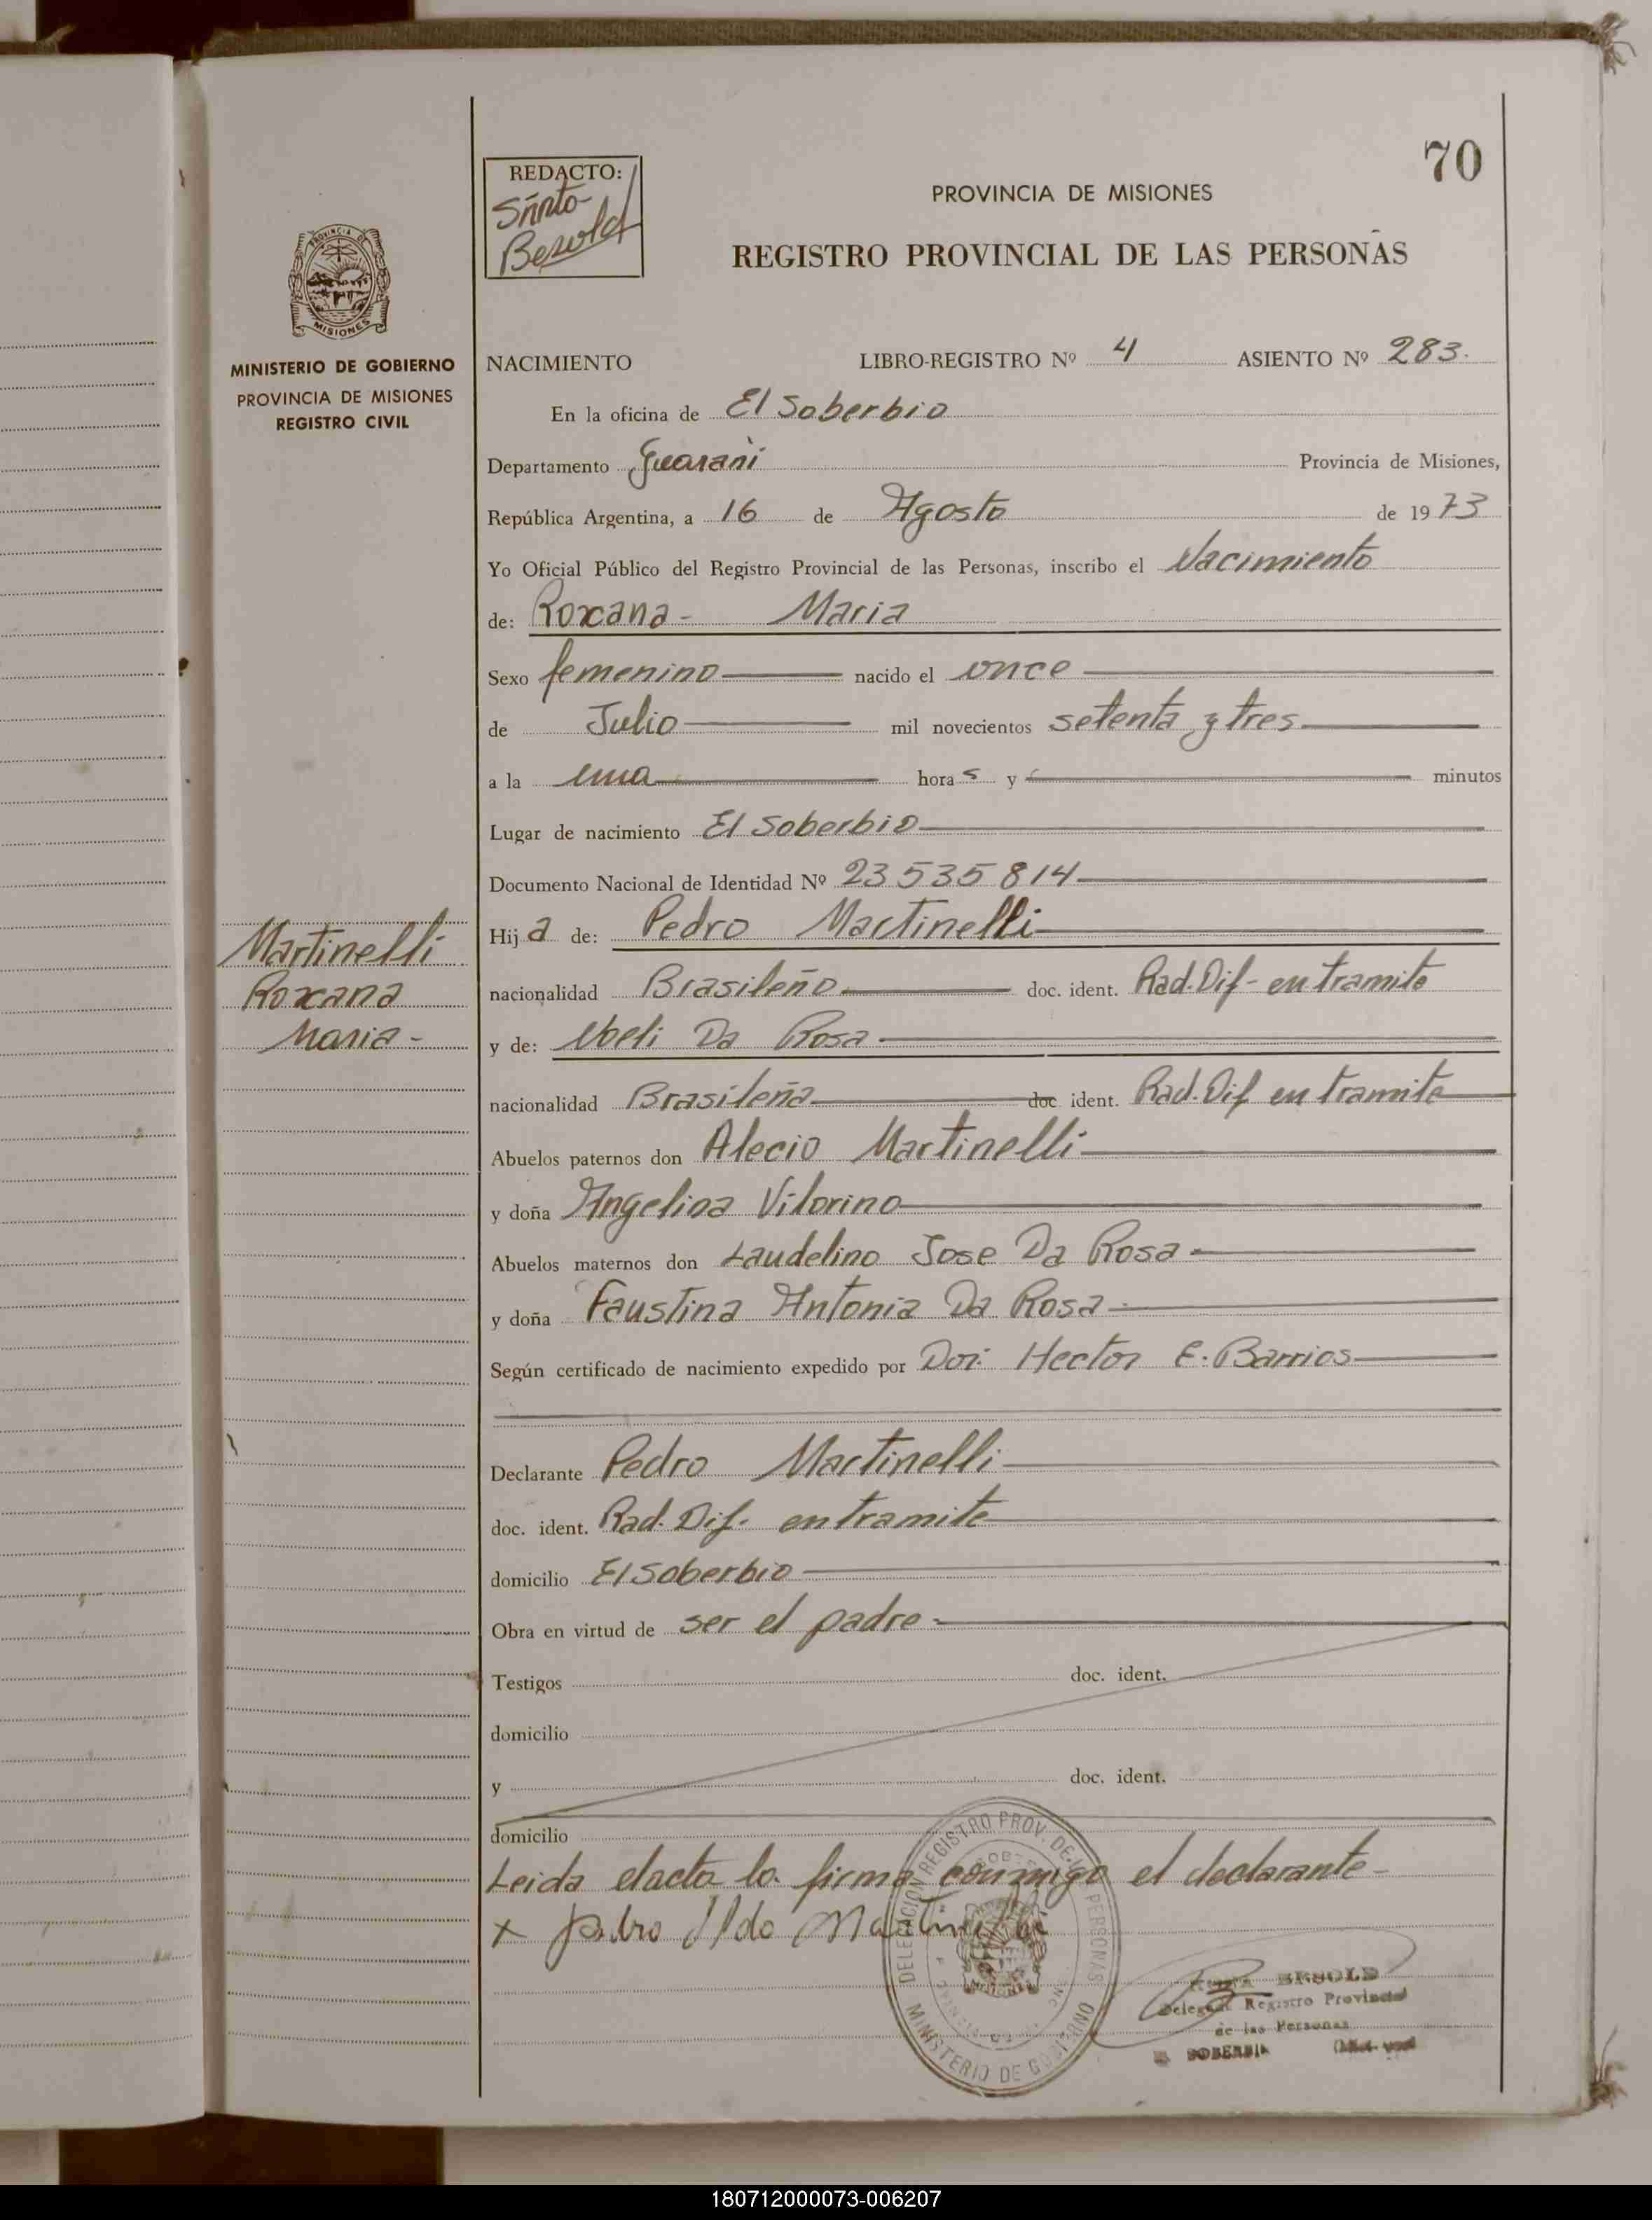 70
REDACTO:
Besold
PROVINCIA DE MISIONES
REGISTRO PROVINCIAL DE LAS PERSONAS
PROVINCIA DE
MISIONES
MINISTERIO DE GOBIERNO
PROVINCIA DE MISIONES
REGISTRO CIVIL
NACIMIENTO LIBRO-REGISTRO Nº 4 ASIENTO Nº 283.
En la oficina de El Soberbio
Departamento Guarani Provincia de Misiones,
República Argentina, a 16 de Agosto de 1973
Yo Oficial Público del Registro Provincial de las Personas, inscribo el Nacimiento
de: Roxana - Maria
Sexo femenino nacido el once
de Julio mil novecientos setenta y tres
a la una hora s y minutos
Lugar de nacimiento El Soberbio
Documento Nacional de Identidad Nº 23535814
Hij a de: Pedro Martinelli
Martinelli
Roxana
Maria -
nacionalidad Brasileño doc. ident. Rad. Dif - en tramite
y de: Da Rosa
nacionalidad Brasileña doc ident. Rad. Dif en tramite
Abuelos paternos don Alecio Martinelli
y doña Angelina Vitorino
Abuelos maternos don Laudelino Jose Da Rosa
y doña Faustina Antonia Da Rosa
Según certificado de nacimiento expedido por Hector E. Barrios
Declarante Pedro Martinelli
doc. ident. Rad. Dif. en tramite
domicilio El Soberbio
Obra en virtud de ser el padre
Testigos doc. ident.
domicilio
y doc. ident.
domicilio
Leida el acta la firma conmigo el declarante
x Ildo Martinelli
DELEGACION REGISTRO PROV. DE PERSONAS
MINISTERIO DE GOBIERNO
BESOLD
Registro Provincial
de las Personas
180712000073-006207